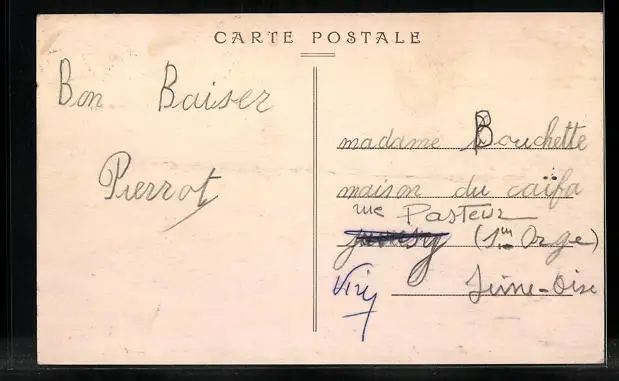 CARTE POSTALE
Bon Baiser
Pierrot
madame Bouchette
maison du caïfa
rue Pasteur
(s/m Orge)
Viry Seine-Oise